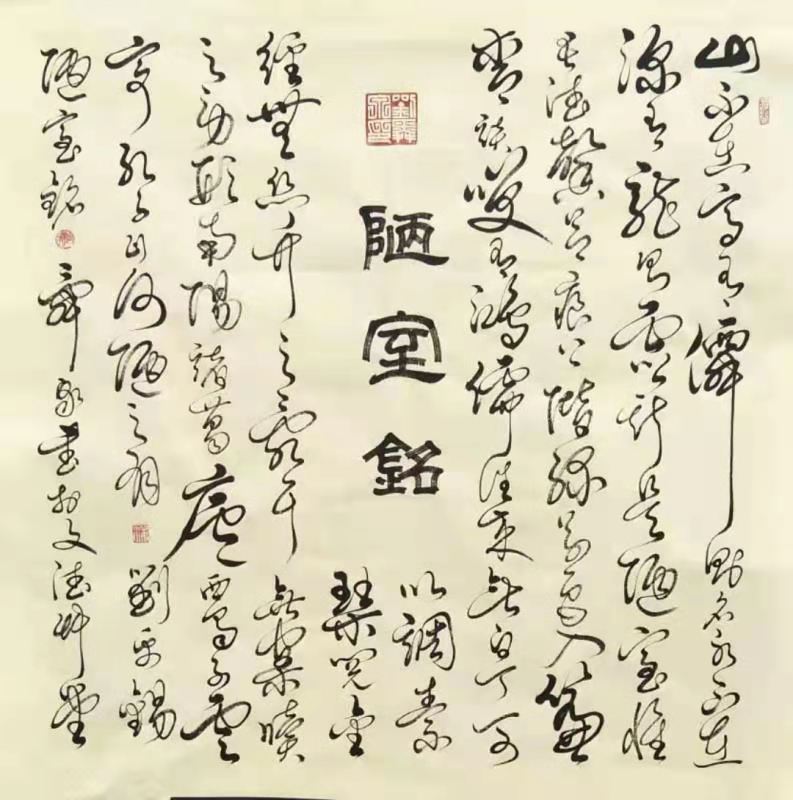 山不在高有僊則名水不在
深有龍則靈斯是陋室惟
吾德馨苔痕上階綠草色入簾
青談笑有鴻儒往來無白丁可
以調素
琴閱金
陋室銘
經無絲竹之亂耳無案牘
之勞形南陽諸葛廬西蜀子雲
亭孔子曰何陋之有 劉禹錫
陋室銘 書於文德草堂